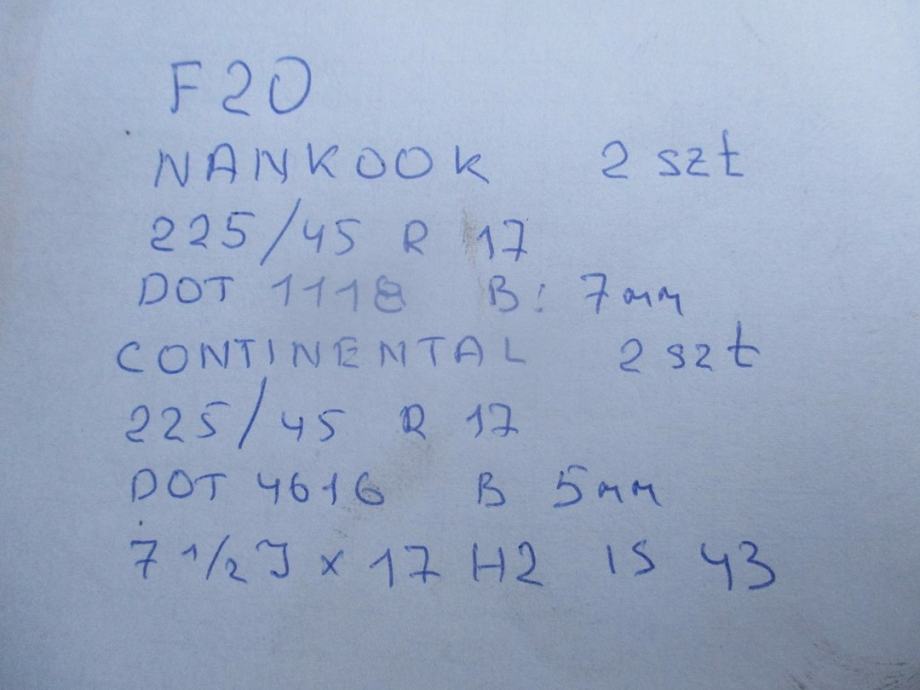 F20
NANKOOK 2 szt
225/45 R 17
DOT 1118 B: 7mm
CONTINENTAL 2 szt
225/45 R 17
DOT 4616 B 5mm
7 1/2 J x 17 H2 IS 43